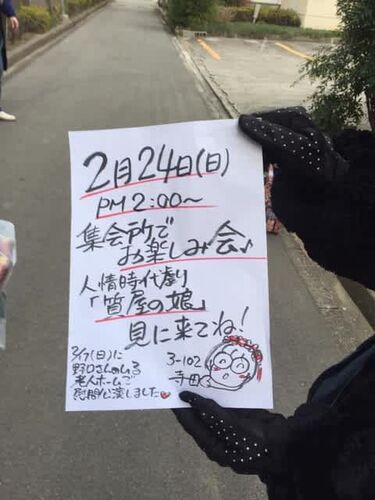 2月24日(日)
PM 2:00〜
集会所で
お楽しみ会♪
人情時代劇
「質屋の娘」
見に来てね!
3-102
寺田
野口さんのいる
老人ホームで
慰問公演しました❤